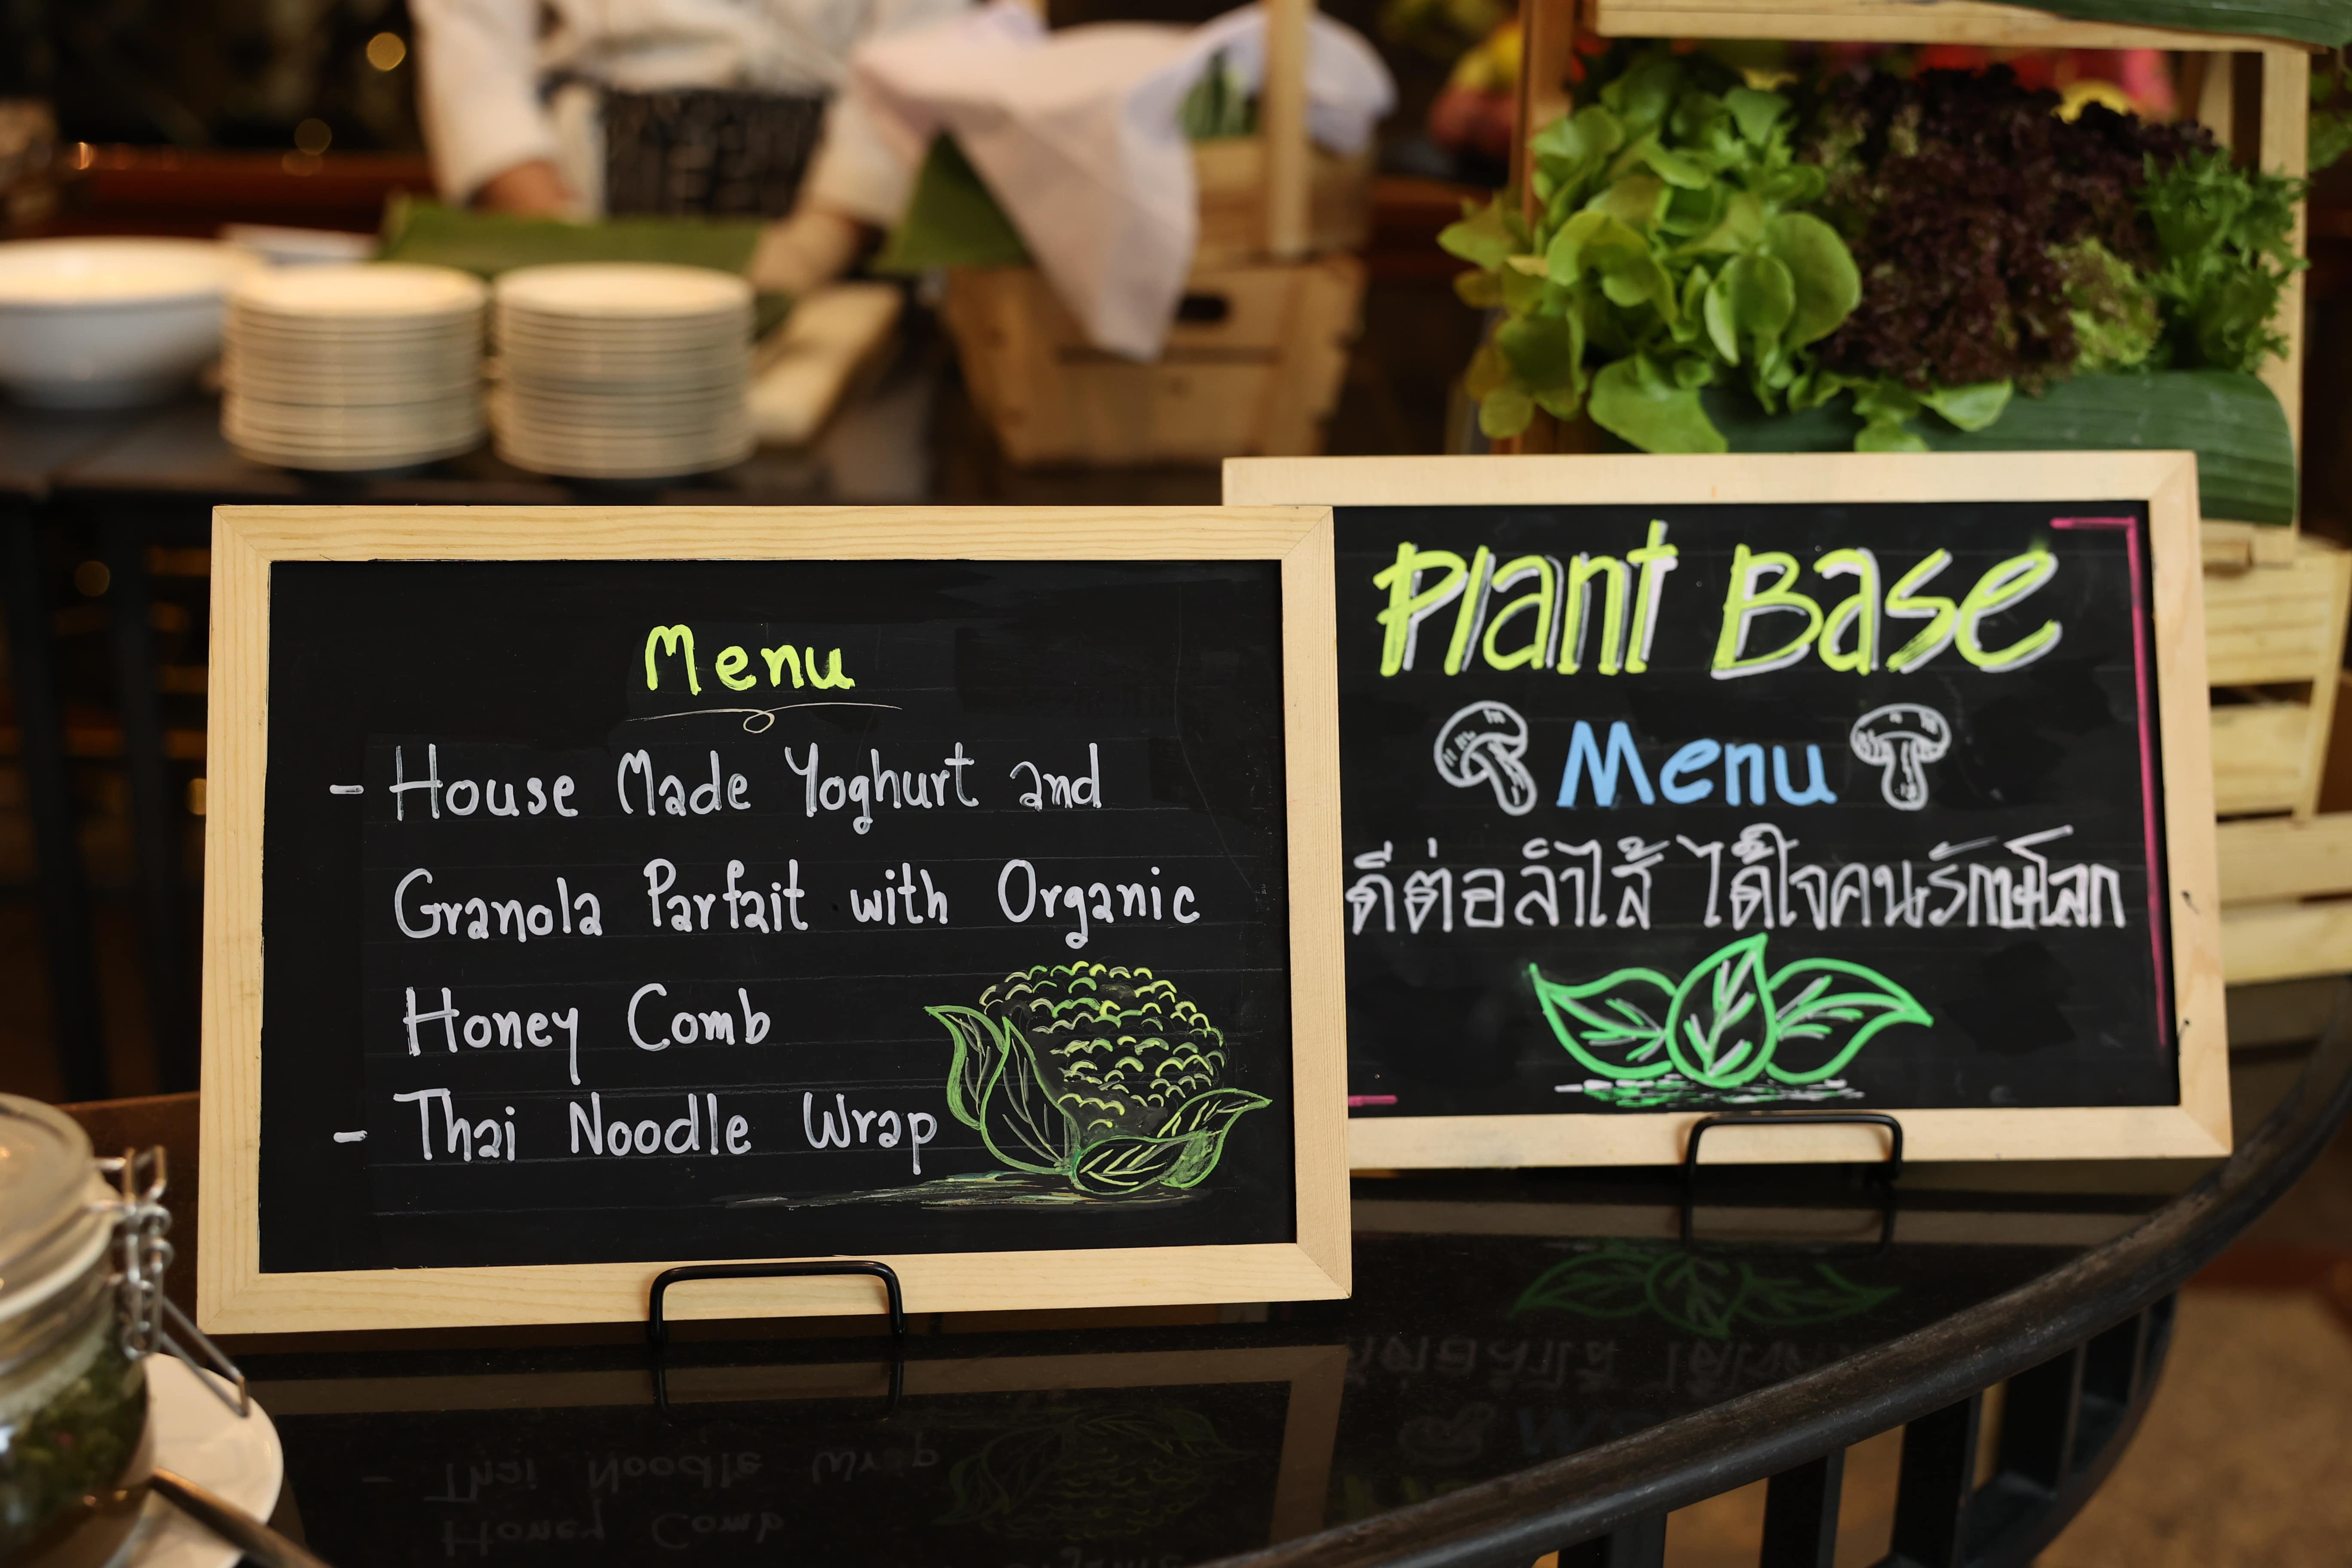 Menu
- House Made Yoghurt and
Granola Parfait with Organic
Honey Comb
- Thai Noodle Wrap
Plant Base
Menu
ดีต่อลำไส้ ได้ใจคนรักษ์โลก